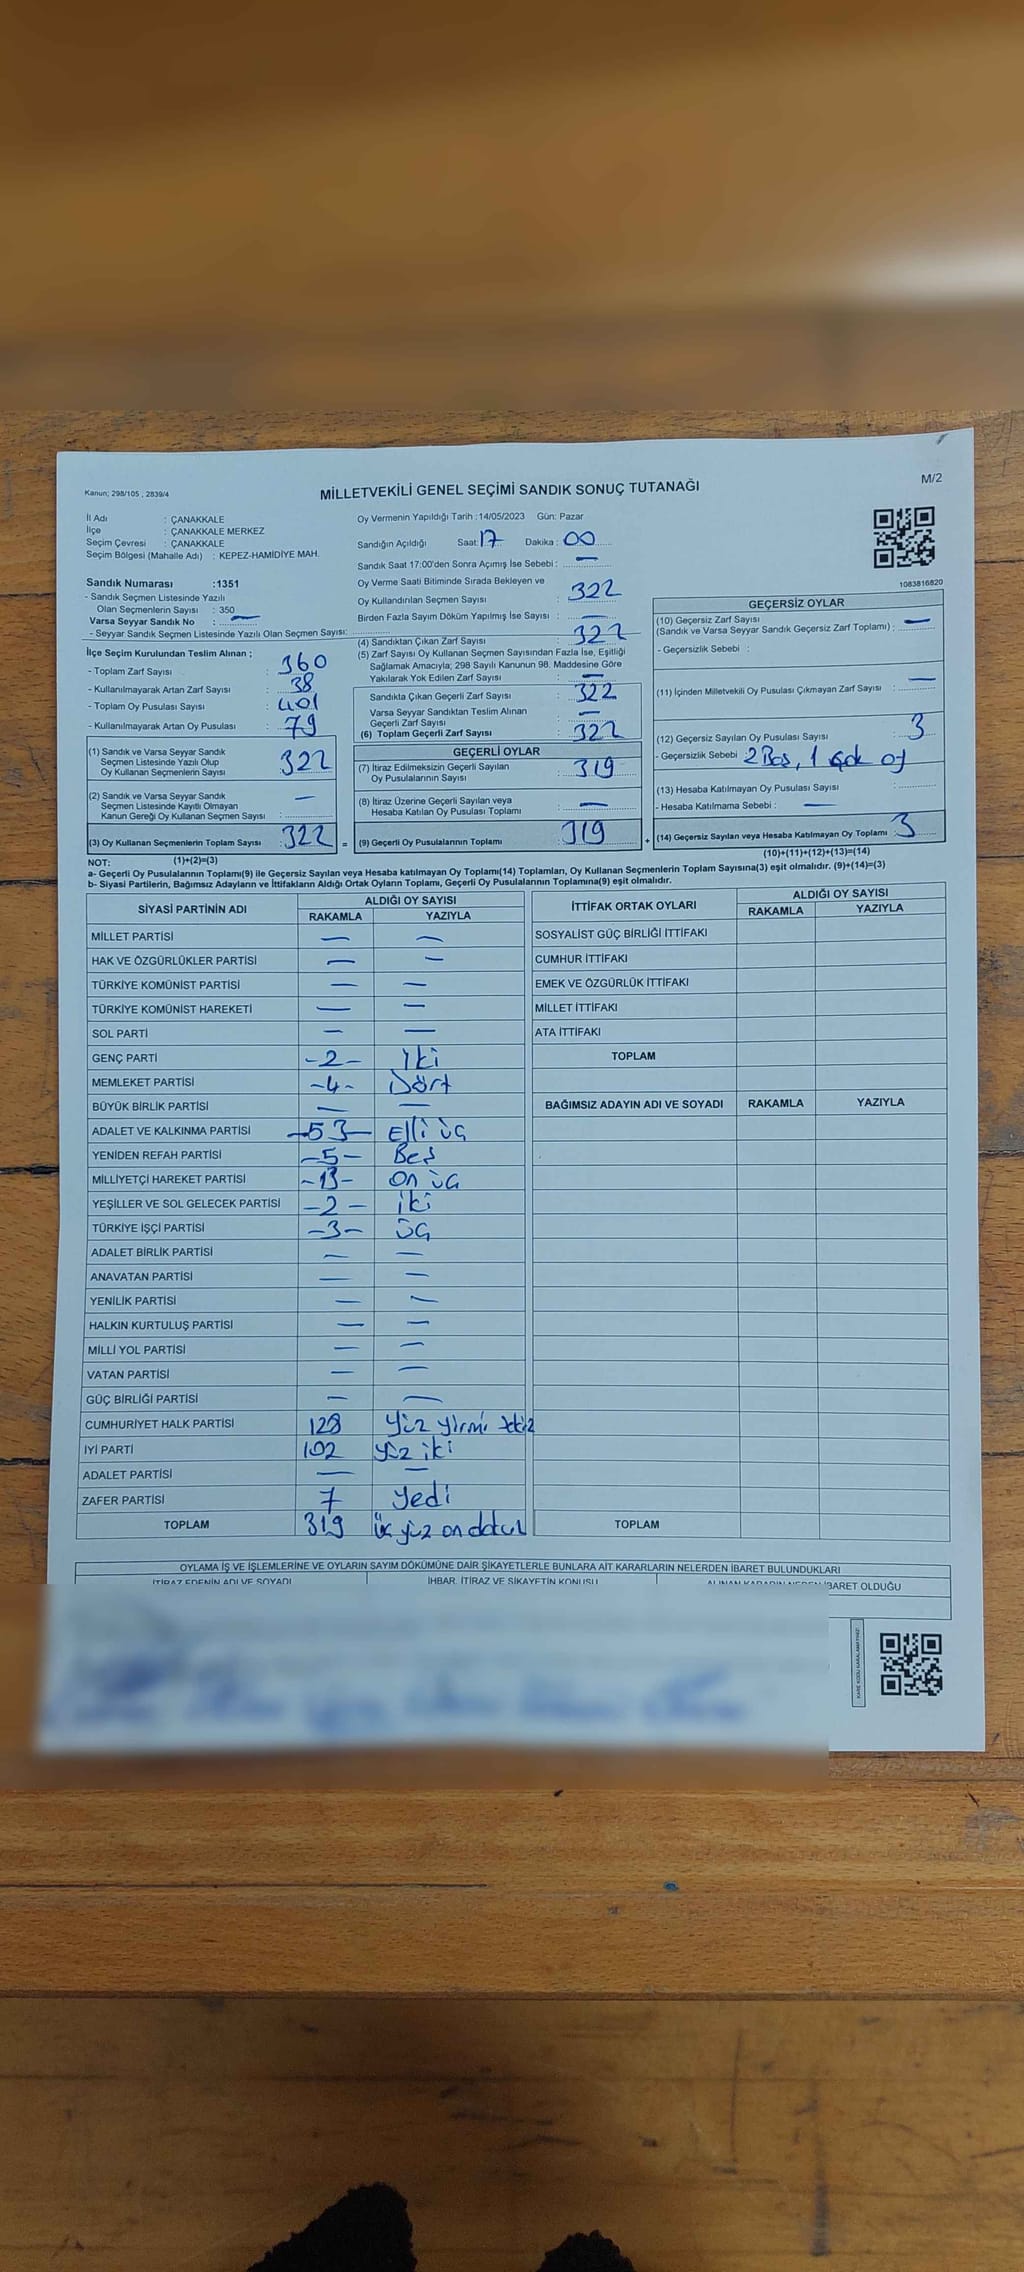 Kanun; 298/105 , 2839/4
MİLLETVEKİLİ GENEL SEÇİMİ SANDIK SONUÇ TUTANAĞI
M/2
İl Adı : ÇANAKKALE
İlçe : ÇANAKKALE MERKEZ
Seçim Çevresi : ÇANAKKALE
Seçim Bölgesi (Mahalle Adı) : KEPEZ-HAMİDİYE MAH.
Sandık Numarası :1351
- Sandık Seçmen Listesinde Yazılı
Olan Seçmenlerin Sayısı : 350
Varsa Seyyar Sandık No : —
- Seyyar Sandık Seçmen Listesinde Yazılı Olan Seçmen Sayısı:
İlçe Seçim Kurulundan Teslim Alınan ;
- Toplam Zarf Sayısı : 360
- Kullanılmayarak Artan Zarf Sayısı : 38
- Toplam Oy Pusulası Sayısı : 401
- Kullanılmayarak Artan Oy Pusulası : 79
(1) Sandık ve Varsa Seyyar Sandık
Seçmen Listesinde Yazılı Olup
Oy Kullanan Seçmenlerin Sayısı : 322
(2) Sandık ve Varsa Seyyar Sandık
Seçmen Listesinde Kayıtlı Olmayan
Kanun Gereği Oy Kullanan Seçmen Sayısı : —
(3) Oy Kullanan Seçmenlerin Toplam Sayısı : 322 =
Oy Vermenin Yapıldığı Tarih :14/05/2023 Gün: Pazar
Sandığın Açıldığı Saat: 17 Dakika : 00
Sandık Saat 17:00'den Sonra Açımış İse Sebebi : —
Oy Verme Saati Bitiminde Sırada Bekleyen ve
Oy Kullandırılan Seçmen Sayısı : 322
Birden Fazla Sayım Döküm Yapılmış İse Sayısı : —
(4) Sandıktan Çıkan Zarf Sayısı : 322
(5) Zarf Sayısı Oy Kullanan Seçmen Sayısından Fazla İse, Eşitliği
Sağlamak Amacıyla; 298 Sayılı Kanunun 98. Maddesine Göre
Yakılarak Yok Edilen Zarf Sayısı : —
Sandıkta Çıkan Geçerli Zarf Sayısı : 322
Varsa Seyyar Sandıktan Teslim Alınan
Geçerli Zarf Sayısı : —
(6) Toplam Geçerli Zarf Sayısı : 322
GEÇERLİ OYLAR
(7) İtiraz Edilmeksizin Geçerli Sayılan
Oy Pusulalarının Sayısı : 319
(8) İtiraz Üzerine Geçerli Sayılan veya
Hesaba Katılan Oy Pusulası Toplamı : —
(9) Geçerli Oy Pusulalarının Toplamı : 319 +
1083816820
GEÇERSİZ OYLAR
(10) Geçersiz Zarf Sayısı
(Sandık ve Varsa Seyyar Sandık Geçersiz Zarf Toplamı) : —
- Geçersizlik Sebebi :
(11) İçinden Milletvekili Oy Pusulası Çıkmayan Zarf Sayısı : —
(12) Geçersiz Sayılan Oy Pusulası Sayısı : 3
- Geçersizlik Sebebi 2 Boş, 1 çok oy
(13) Hesaba Katılmayan Oy Pusulası Sayısı :
- Hesaba Katılmama Sebebi : —
(14) Geçersiz Sayılan veya Hesaba Katılmayan Oy Toplamı : 3
NOT: (1)+(2)=(3) (10)+(11)+(12)+(13)=(14)
a- Geçerli Oy Pusulalarının Toplamı(9) ile Geçersiz Sayılan veya Hesaba katılmayan Oy Toplamı(14) Toplamları, Oy Kullanan Seçmenlerin Toplam Sayısına(3) eşit olmalıdır. (9)+(14)=(3)
b- Siyasi Partilerin, Bağımsız Adayların ve İttifakların Aldığı Ortak Oyların Toplamı, Geçerli Oy Pusulalarının Toplamına(9) eşit olmalıdır.
SİYASİ PARTİNİN ADI ALDIĞI OY SAYISI
RAKAMLA YAZIYLA
MİLLET PARTİSİ — —
HAK VE ÖZGÜRLÜKLER PARTİSİ — —
TÜRKİYE KOMÜNİST PARTİSİ — —
TÜRKİYE KOMÜNİST HAREKETİ — —
SOL PARTİ — —
GENÇ PARTİ -2- iki
MEMLEKET PARTİSİ -4- Dört
BÜYÜK BİRLİK PARTİSİ — —
ADALET VE KALKINMA PARTİSİ -53- Elli üç
YENİDEN REFAH PARTİSİ -5- Beş
MİLLİYETÇİ HAREKET PARTİSİ -13- on üç
YEŞİLLER VE SOL GELECEK PARTİSİ -2- iki
TÜRKİYE İŞÇİ PARTİSİ -3- üç
ADALET BİRLİK PARTİSİ — —
ANAVATAN PARTİSİ — —
YENİLİK PARTİSİ — —
HALKIN KURTULUŞ PARTİSİ — —
MİLLİ YOL PARTİSİ — —
VATAN PARTİSİ — —
GÜÇ BİRLİĞİ PARTİSİ — —
CUMHURİYET HALK PARTİSİ 128 yüz yirmi sekiz
İYİ PARTİ 102 yüz iki
ADALET PARTİSİ — —
ZAFER PARTİSİ 7 yedi
TOPLAM 319 üç yüz on dokuz
İTTİFAK ORTAK OYLARI ALDIĞI OY SAYISI
RAKAMLA YAZIYLA
SOSYALİST GÜÇ BİRLİĞİ İTTİFAKI
CUMHUR İTTİFAKI
EMEK VE ÖZGÜRLÜK İTTİFAKI
MİLLET İTTİFAKI
ATA İTTİFAKI
TOPLAM
BAĞIMSIZ ADAYIN ADI VE SOYADI RAKAMLA YAZIYLA
TOPLAM
OYLAMA İŞ VE İŞLEMLERİNE VE OYLARIN SAYIM DÖKÜMÜNE DAİR ŞİKAYETLERLE BUNLARA AİT KARARLARIN NELERDEN İBARET BULUNDUKLARI
İTİRAZ EDENİN ADI VE SOYADI İHBAR, İTİRAZ VE ŞİKAYETİN KONUSU ALINAN KARARIN NEDEN İBARET OLDUĞU